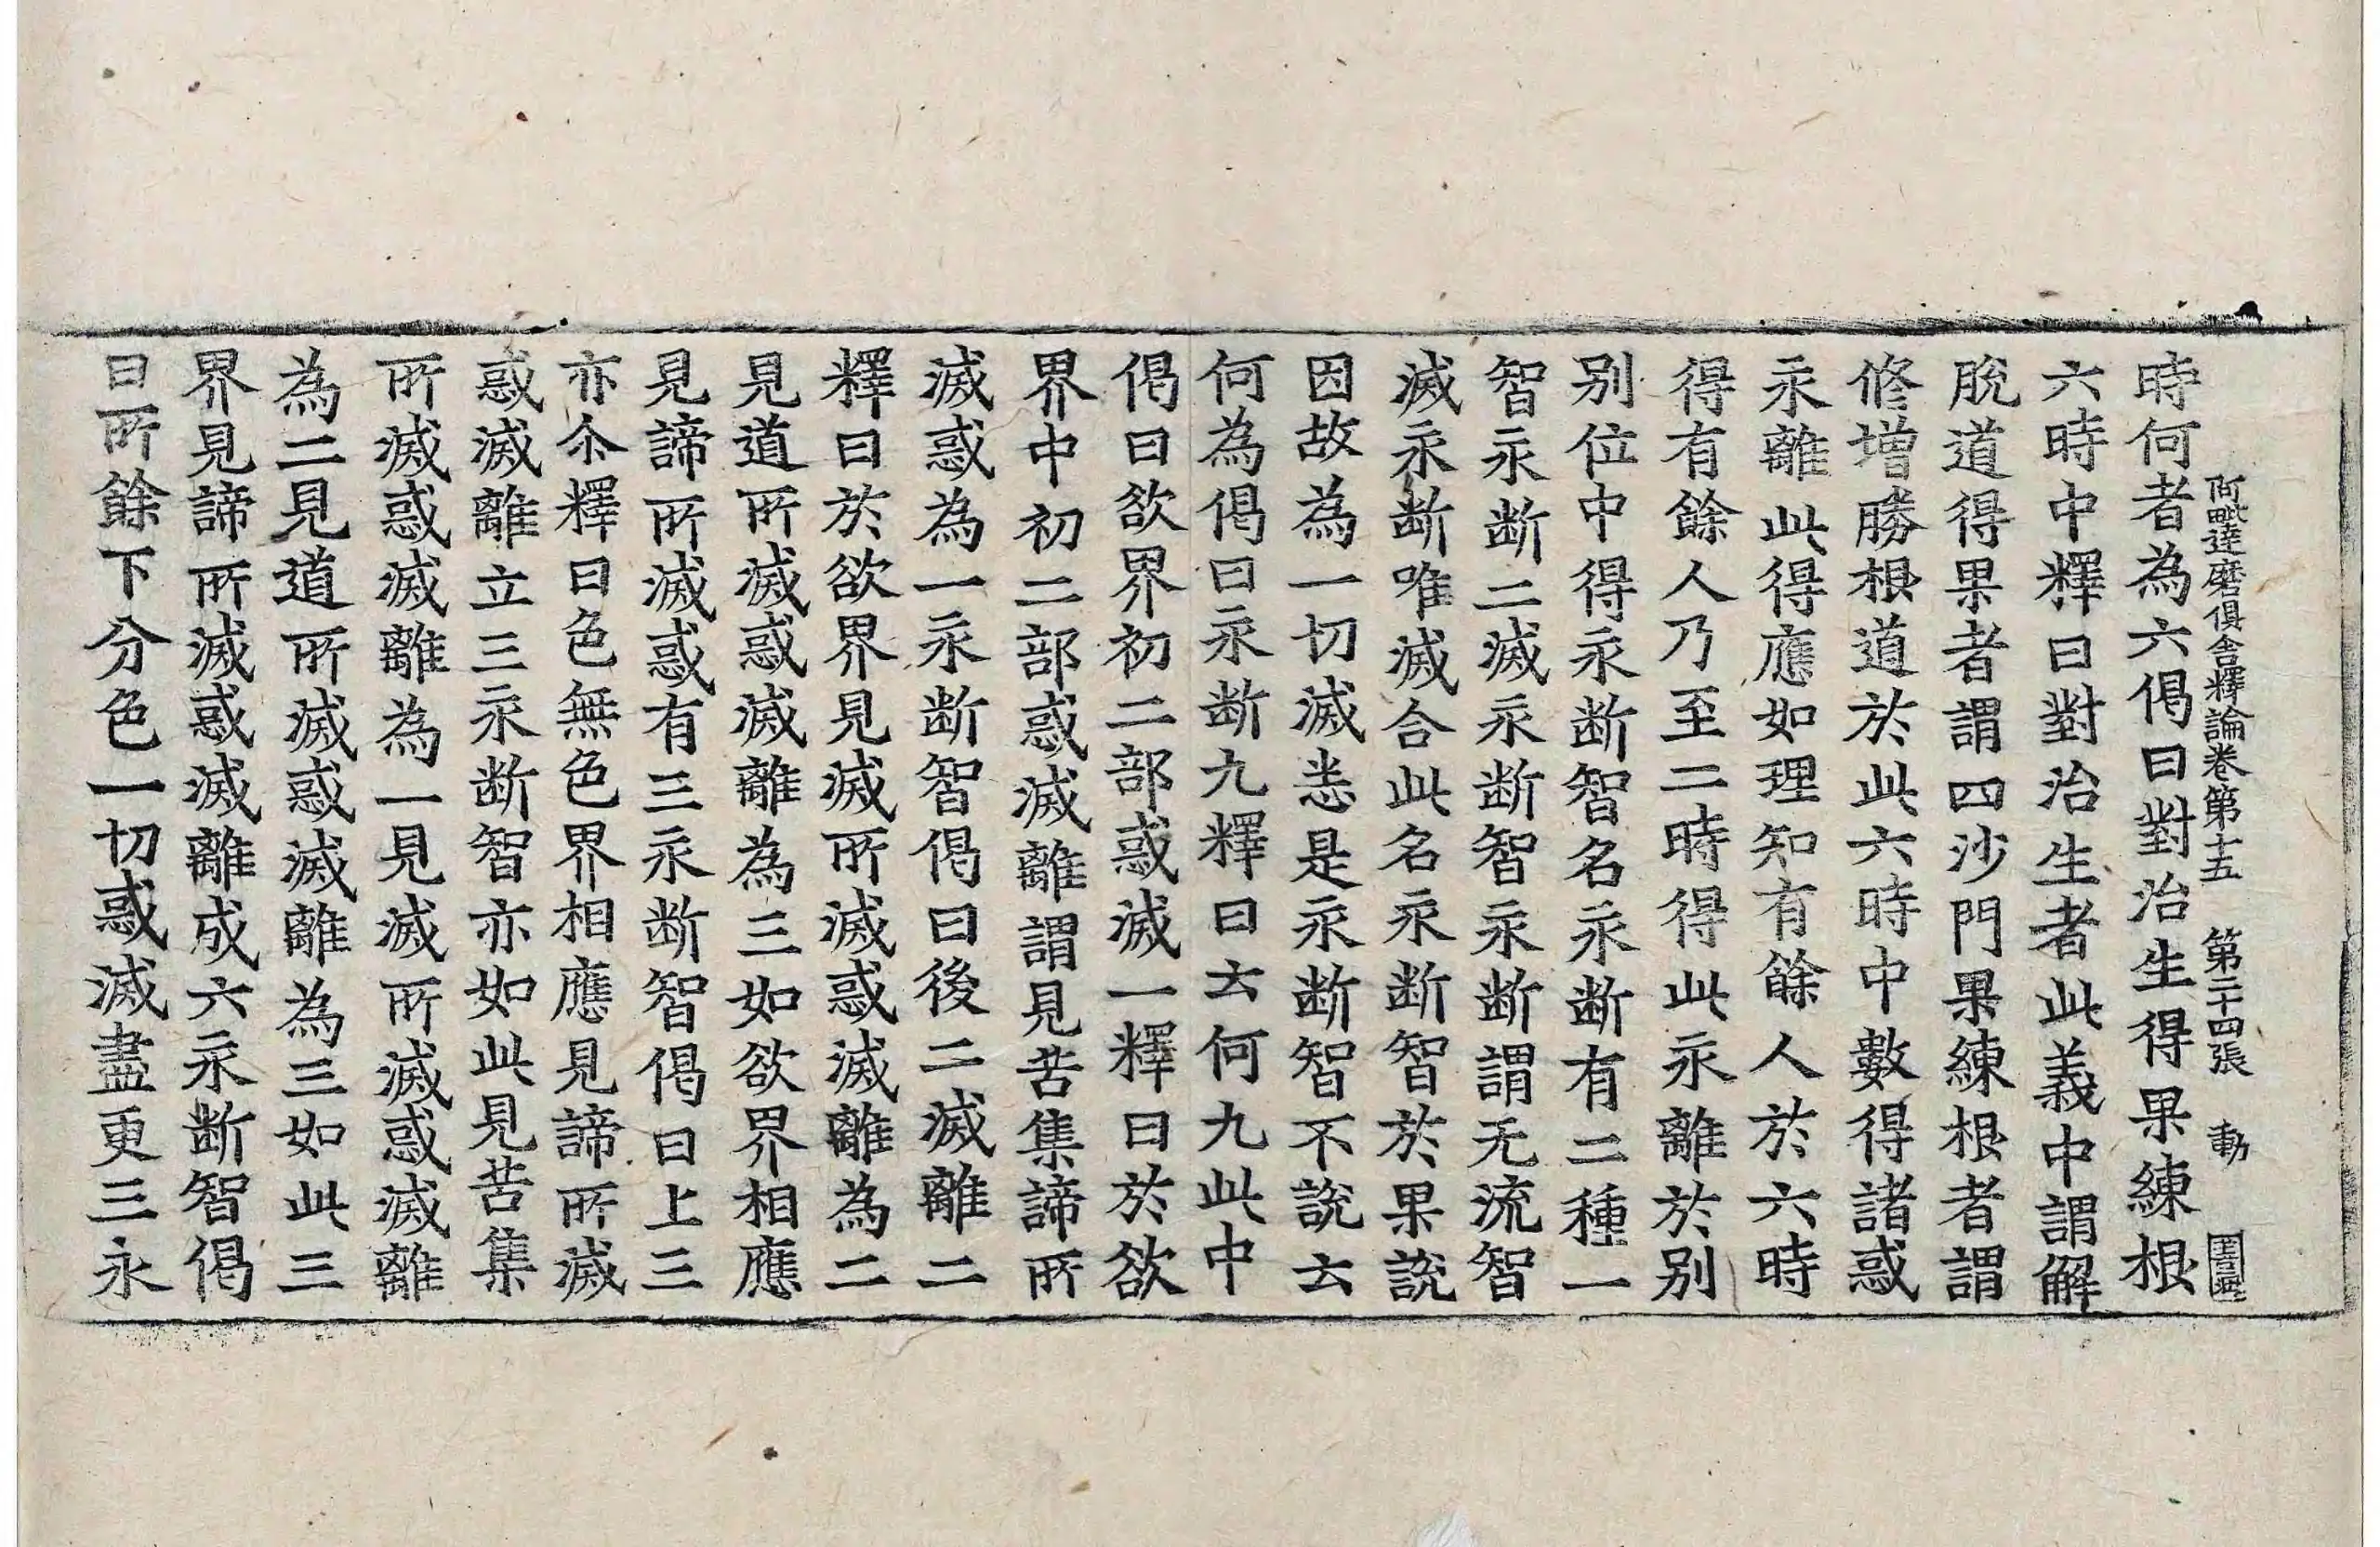 阿毗達磨俱舍釋論卷第十五 第二十四張 動
時何者為六偈曰對治生得果練根
六時中釋曰對治生者此義中謂解
脫道得果者謂四沙門果練根者謂
修增勝根道於此六時中數得諸惑
永離此得應如理知有餘人於六時
得有餘人乃至二時得此永離於別
別位中得永断智名永断有二種一
智永断二滅永断智永断謂无流智
滅永断唯滅合此名永断智於果說
因故為一切滅恙是永断智不說云
何為偈曰永断九釋曰云何九此中
偈曰欲界初二部惑滅一釋曰於欲
界中初二部惑滅離謂見苦集諦所
滅惑為一永断智偈曰後二滅離二
釋曰於欲界見滅所滅惑滅離為二
見道所滅惑滅離為三如欲界相應
見諦所滅惑有三永断智偈曰上三
亦尒釋曰色無色界相應見諦所滅
惑滅離立三永断智亦如此見苦集
所滅惑滅離為一見滅所滅惑滅離
為二見道所滅惑滅離為三如此三
界見諦所滅惑滅離成六永断智偈
曰所餘下分色一切惑滅盡更三永